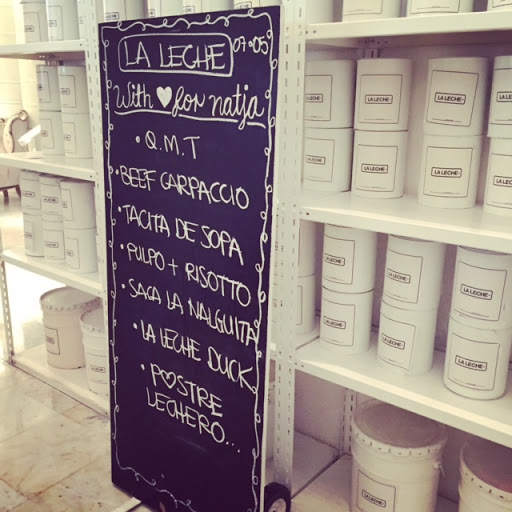 LA LECHE 07·05
With ♥ for natja
• Q.M.T
• BEEF CARPACCIO
• TACITA DE SOPA
• PULPO + RISOTTO
• SACA LA NALGUITA
• LA LECHE DUCK
• POSTRE
LECHERO...
LA LECHE·
LA LECHE·
LA LECHE·
LA LECHE·
LA LECHE·
LA LECHE·
LA LECHE·
LA LECHE·
LA LECHE·
LA LECHE·
LA LECHE·
LA LECHE·